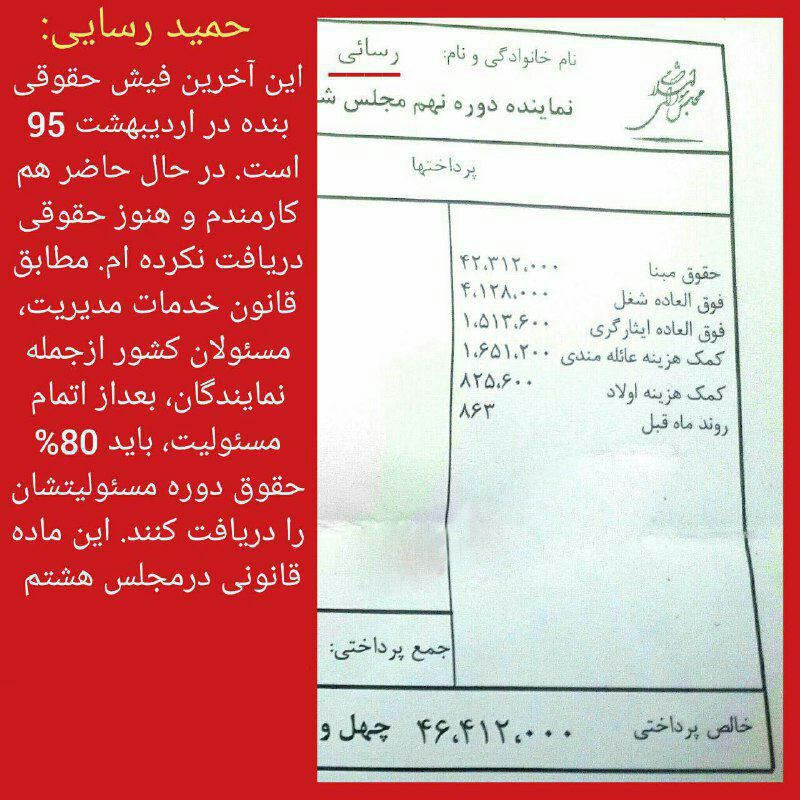 حمید رسایی:
این آخرین فیش حقوقی
بنده در اردیبهشت 95
است. در حال حاضر هم
کارمندم و هنوز حقوقی
دریافت نکرده ام. مطابق
قانون خدمات مدیریت،
مسئولان کشور ازجمله
نمایندگان، بعداز اتمام
مسئولیت، باید 80%
حقوق دوره مسئولیتشان
را دریافت کنند. این ماده
قانونی درمجلس هشتم
نام خانوادگی و نام: رسائی
نماینده دوره نهم مجلس ش
پرداختها
حقوق مبنا ۴۲،۳۱۲،۰۰۰
فوق العاده شغل ۴،۱۲۸،۰۰۰
فوق العاده ایثارگری ۱،۵۱۳،۶۰۰
کمک هزینه عائله مندی ۱،۶۵۱،۲۰۰
کمک هزینه اولاد ۸۲۵،۶۰۰
روند ماه قبل ۸۶۳
جمع پرداختی:
خالص پرداختی ۴۶،۴۱۲،۰۰۰ چهل و